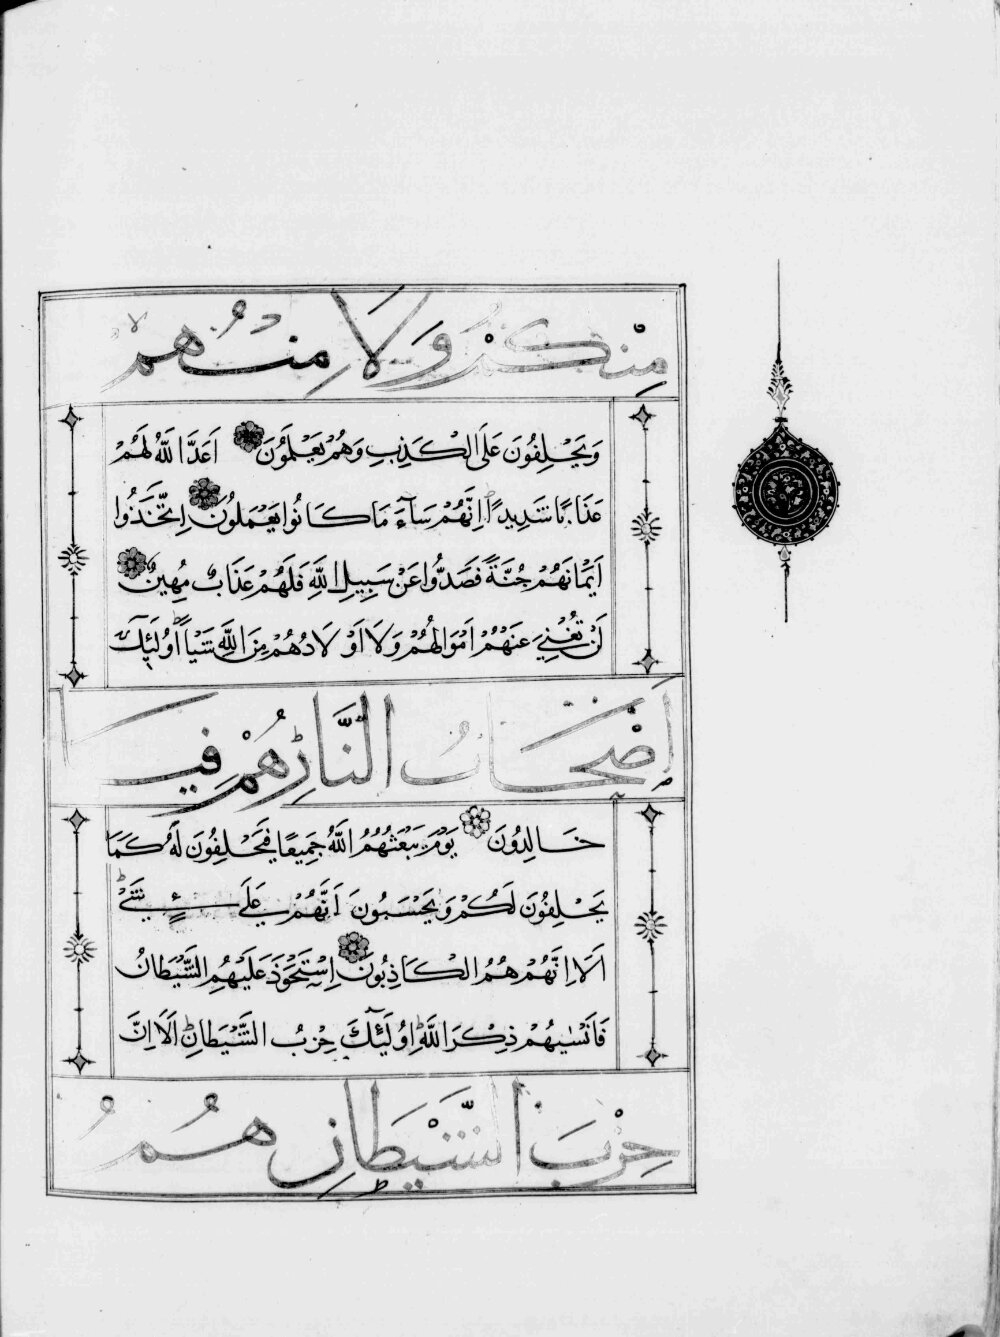 مِنْكُمْ وَلَا مِنْهُمْ
وَيَحْلِفُونَ عَلَى الْكَذِبِ وَهُمْ يَعْلَمُونَ اَعَدَّ اللّٰهُ لَهُمْ
عَذَابًا شَدِيدًا اِنَّهُمْ سَآءَ مَا كَانُوا يَعْمَلُونَ اِتَّخَذُوا
اَيْمَانَهُمْ جُنَّةً فَصَدُّوا عَنْ سَبِيلِ اللّٰهِ فَلَهُمْ عَذَابٌ مُهِينٌ
لَنْ تُغْنِيَ عَنْهُمْ اَمْوَالُهُمْ وَلَا اَوْلَادُهُمْ مِنَ اللّٰهِ شَيْاً اُولٰئِكَ
اَصْحَابُ النَّارِ هُمْ فِيهَا
خَالِدُونَ يَوْمَ يَبْعَثُهُمُ اللّٰهُ جَمِيعًا فَيَحْلِفُونَ لَهُ كَمَا
يَحْلِفُونَ لَكُمْ وَيَحْسَبُونَ اَنَّهُمْ عَلَى شَيْءٍ
اَلَا اِنَّهُمْ هُمُ الْكَاذِبُونَ اِسْتَحْوَذَ عَلَيْهِمُ الشَّيْطَانُ
فَاَنْسٰيهُمْ ذِكْرَ اللّٰهِ اُولٰئِكَ حِزْبُ الشَّيْطَانِ اَلَا اِنَّ
حِزْبَ الشَّيْطَانِ هُمُ